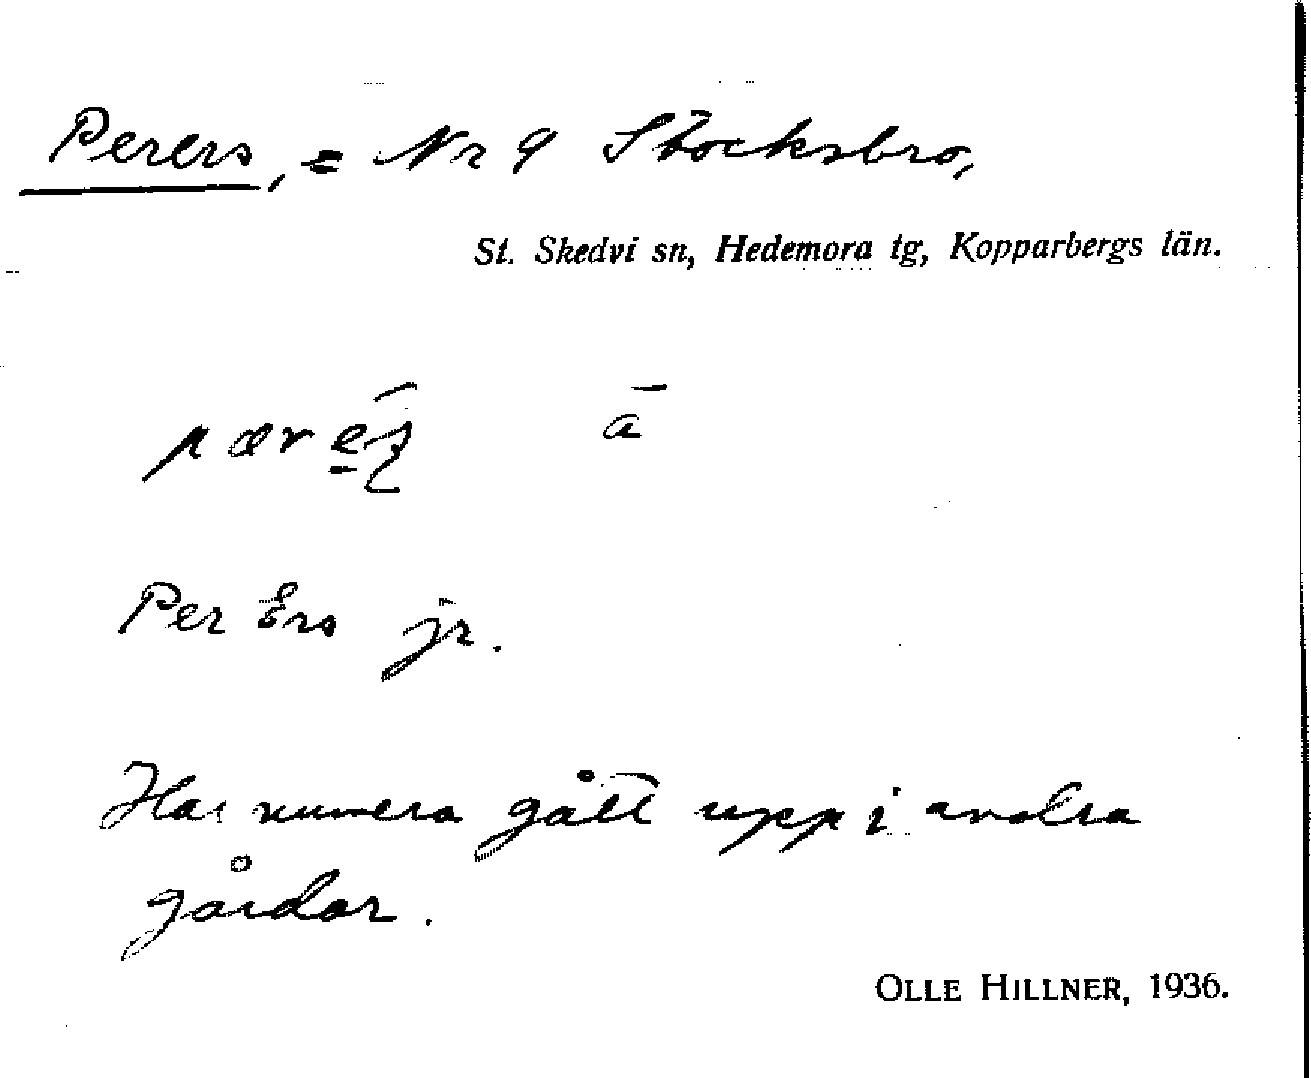 Perers, = Nr 9 Stocksbro,
St. Skedvi sn, Hedemora tg, Kopparbergs län.
ā
Per Ers jr.
Har numera gått upp i andra
gårdar.
OLLE HILLNER, 1936.